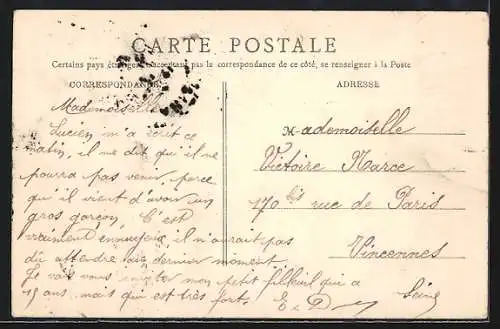 CARTE POSTALE
Certains pays étrangers n'acceptant pas la correspondance de ce côté, se renseigner à la Poste
CORRESPONDANCE
Mademoiselle
Lucien m'a écrit ce
matin, il me dit qu'il ne
pourra pas venir, parce
qu'il vient d'avoir un
gros garçon. C'est
vraiment ennuyeux, il n'aurait pas
dû attendre au dernier moment.
Je vais vous inviter mon petit filleuil qui a
15 ans, mais qui est très fort. E. D
ADRESSE
Mademoiselle
Victoire Marce
170 bis rue de Paris
Vincennes
Seine